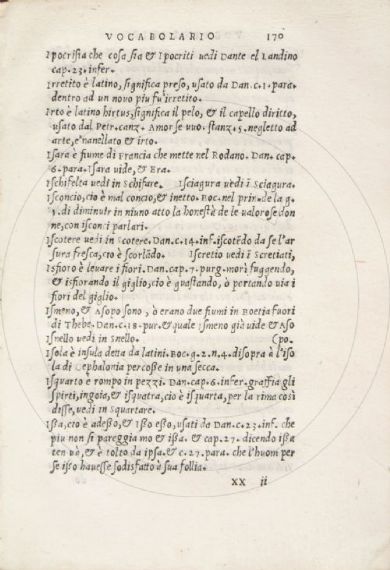 VOCABOLARIO 170
Ipocrisia che cosa sia & Ipocriti uedi Dante el Landino
cap. 23. infer.
Irretito è latino, significa preso, usato da Dan. c. 1. para.
dentro ad un novo piu fu irretito.
Irto è latino hirtus, significa il pelo, & il capello diritto,
usato dal Petr. canz. Amor se uuo. stanz. 5. negletto ad
arte, e nanellato & irto.
Isara è fiume di Francia che mette nel Rodano. Dan. cap.
6. para. Isara uide, & Era.
Ischifelta uedi in Schifare. Isciagura uedi i Sciagura.
Isconcio, cio è mal concio, & inetto. Boc. nel prin. de la g.
5. di diminuir in niuno atto la honestà de le ualorose don
ne, con isconci parlari.
Iscotere uedi in Scotere. Dan. c. 14. inf. iscotēdo da se l'ar
sura fresca, cio è scorlādo. Iscretio uedi i Scretiati,
Isfioro è leuare i fiori. Dan. cap. 7. purg. morì fuggendo,
& isfiorando il giglio, cio è guastando, ò portando via i
fiori del giglio.
Ismeno, & Asopo sono, ò erano due fiumi in Boetia fuori
di Thebe. Dan. c. 18. pur. & quale Ismeno già uide & Aso
Isnello uedi in Snello. (po.
Isola è insula detta da latini. Boc. g. 2. n. 4. disopra à l'iso
la di Cephalonia percosse in una secca.
Isquarto è rompo in pezzi. Dan. cap. 6. infer. graffia gli
spirti, ingoia, & isquatra, cio è isquarta, per la rima così
disse, uedi in squartare.
Issa, cio è adesso, & Isso esso, usati da Dan. c. 23. inf. che
piu non si pareggia mo & issa. & cap. 27. dicendo issa
ten và, & è tolto da ipsa. & c. 27. para. che l'huom per
se isso hauesse sodisfatto à sua follia.
XX ij